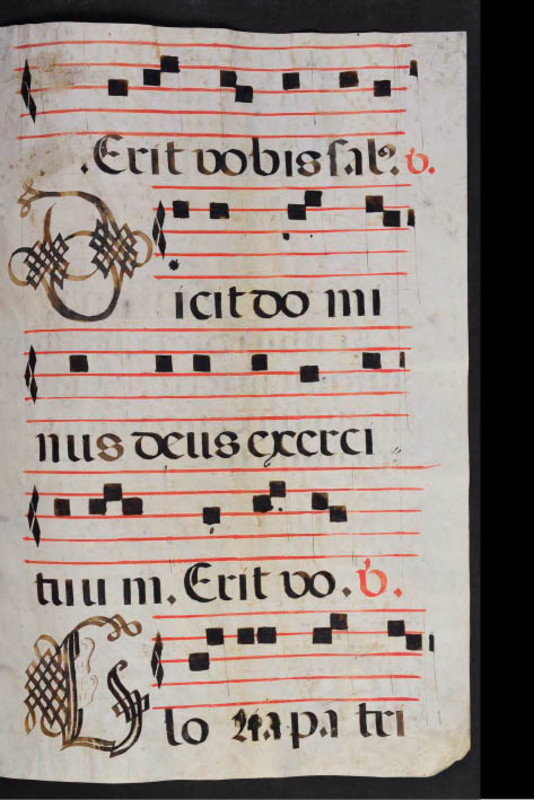 . Erit vobis sal. v.
Dicit do mi
nus deus exerci
tuu m. Erit vo. v.
Glo ria pa tri